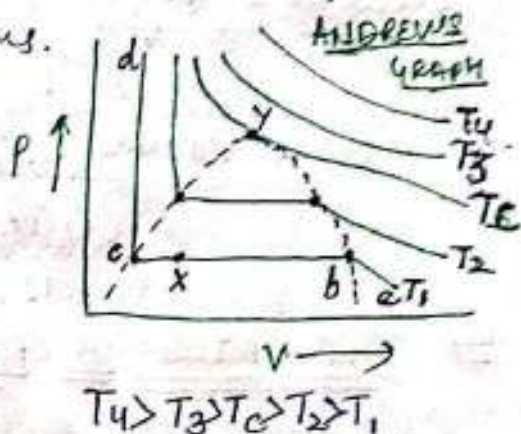 us.
ANDREWS
GRAPH
d
P
y
T4
T3
Tc
T2
c
x
b
a T1
V
T4 > T3 > Tc > T2 > T1